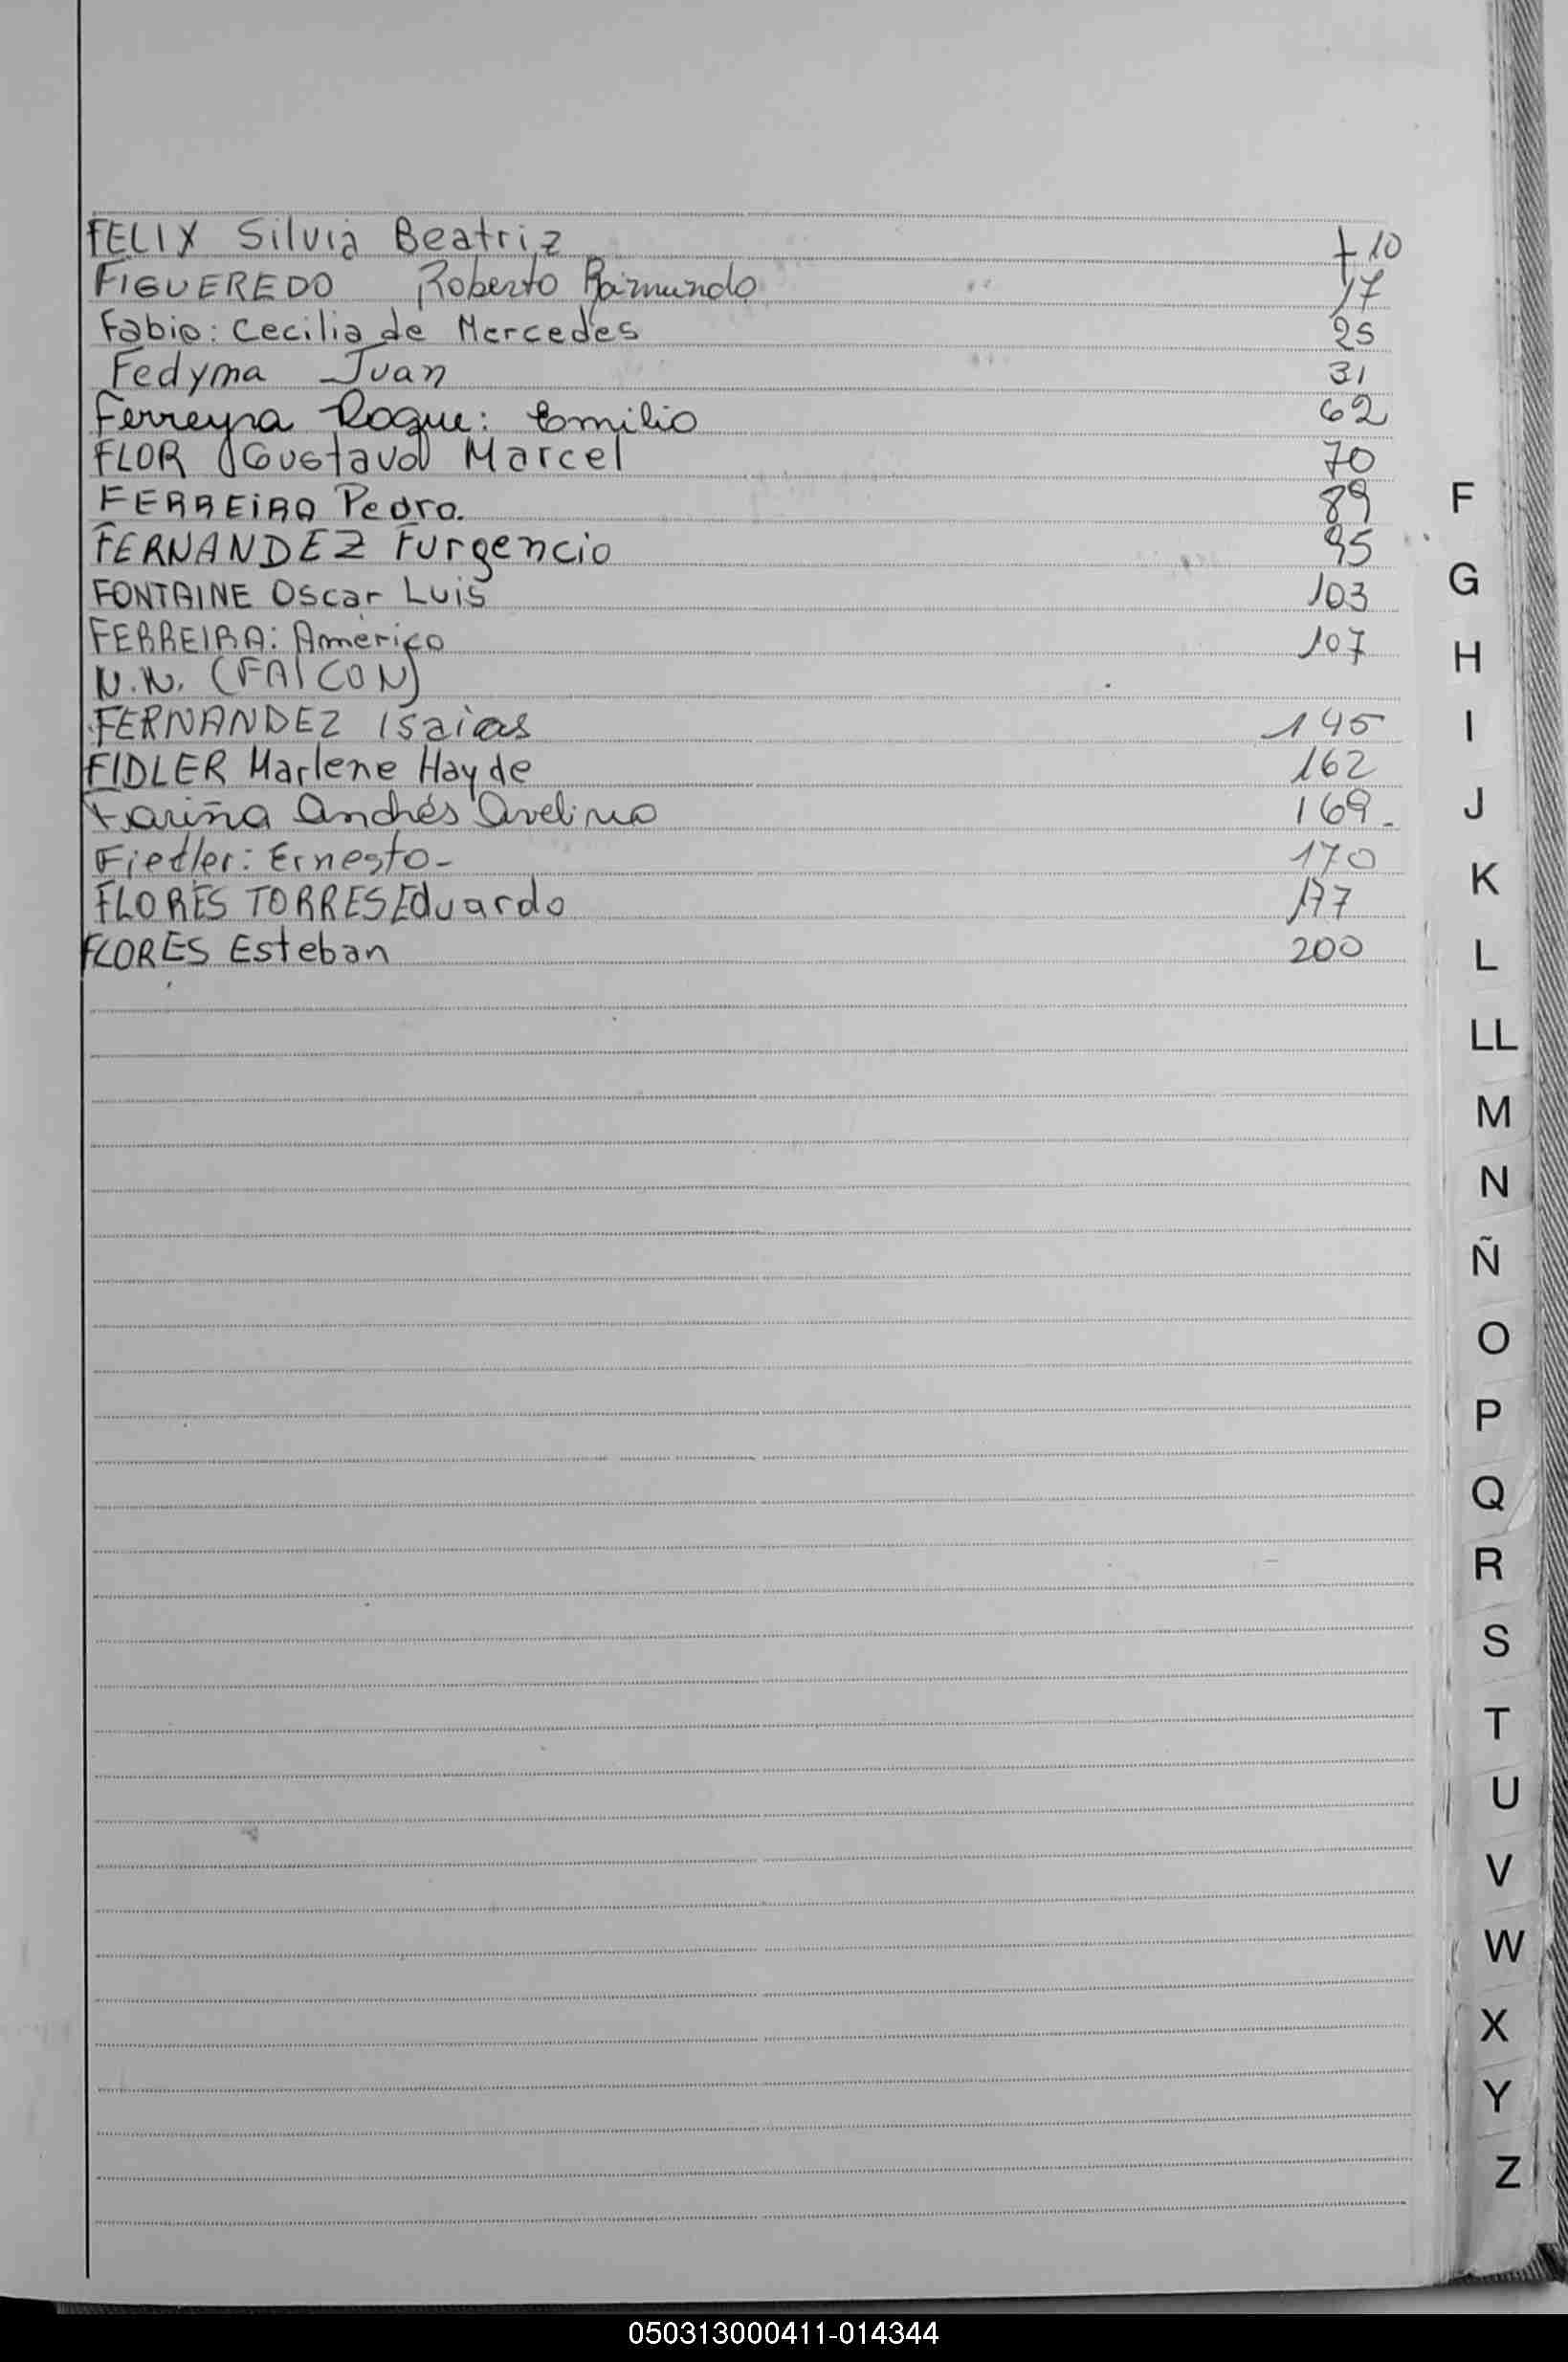 FELIX Silvia Beatriz 10
FIGUEREDO Roberto Raimundo 17
Fabio: Cecilia de Mercedes 25
Fedyma Juan 31
Ferreyra Roque: Emilio 62
FLOR Gustavo Marcel 70
FERREIRA Pedro. 89
FERNANDEZ Furgencio 95
FONTAINE Oscar Luis 103
FERREIRA: Américo 107
N.N. (FALCON)
FERNANDEZ Isaias 145
FIDLER Marlene Hayde 162
Fariña Andrés Avelino 169-
Fiedler: Ernesto- 170
FLORES TORRES Eduardo 177
FLORES Esteban 200
F
G
H
I
J
K
L
LL
M
N
Ñ
O
P
Q
R
S
T
U
V
W
X
Y
Z
050313000411-014344